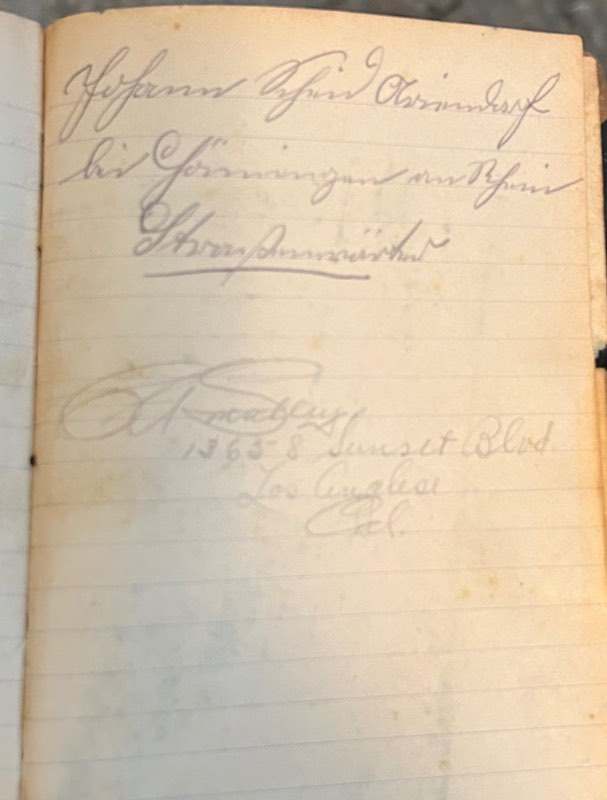 Johann Scheid Ariendorf
bei Hönningen am Rhein
Straßenwärter
13658 Sunset Blvd.
Los Anglese
Cal.